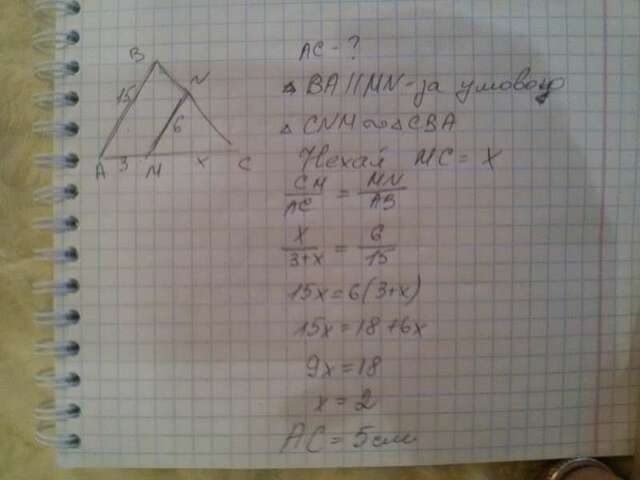 B
15
N
6
A 3 M x C
AC - ?
△ BA || MN - за умовою
△ CNM ∾ △ CBA
Нехай MC = X
CM / AC = MN / AB
X / 3+x = 6 / 15
15x = 6(3+x)
15x = 18 + 6x
9x = 18
x = 2
AC = 5 см